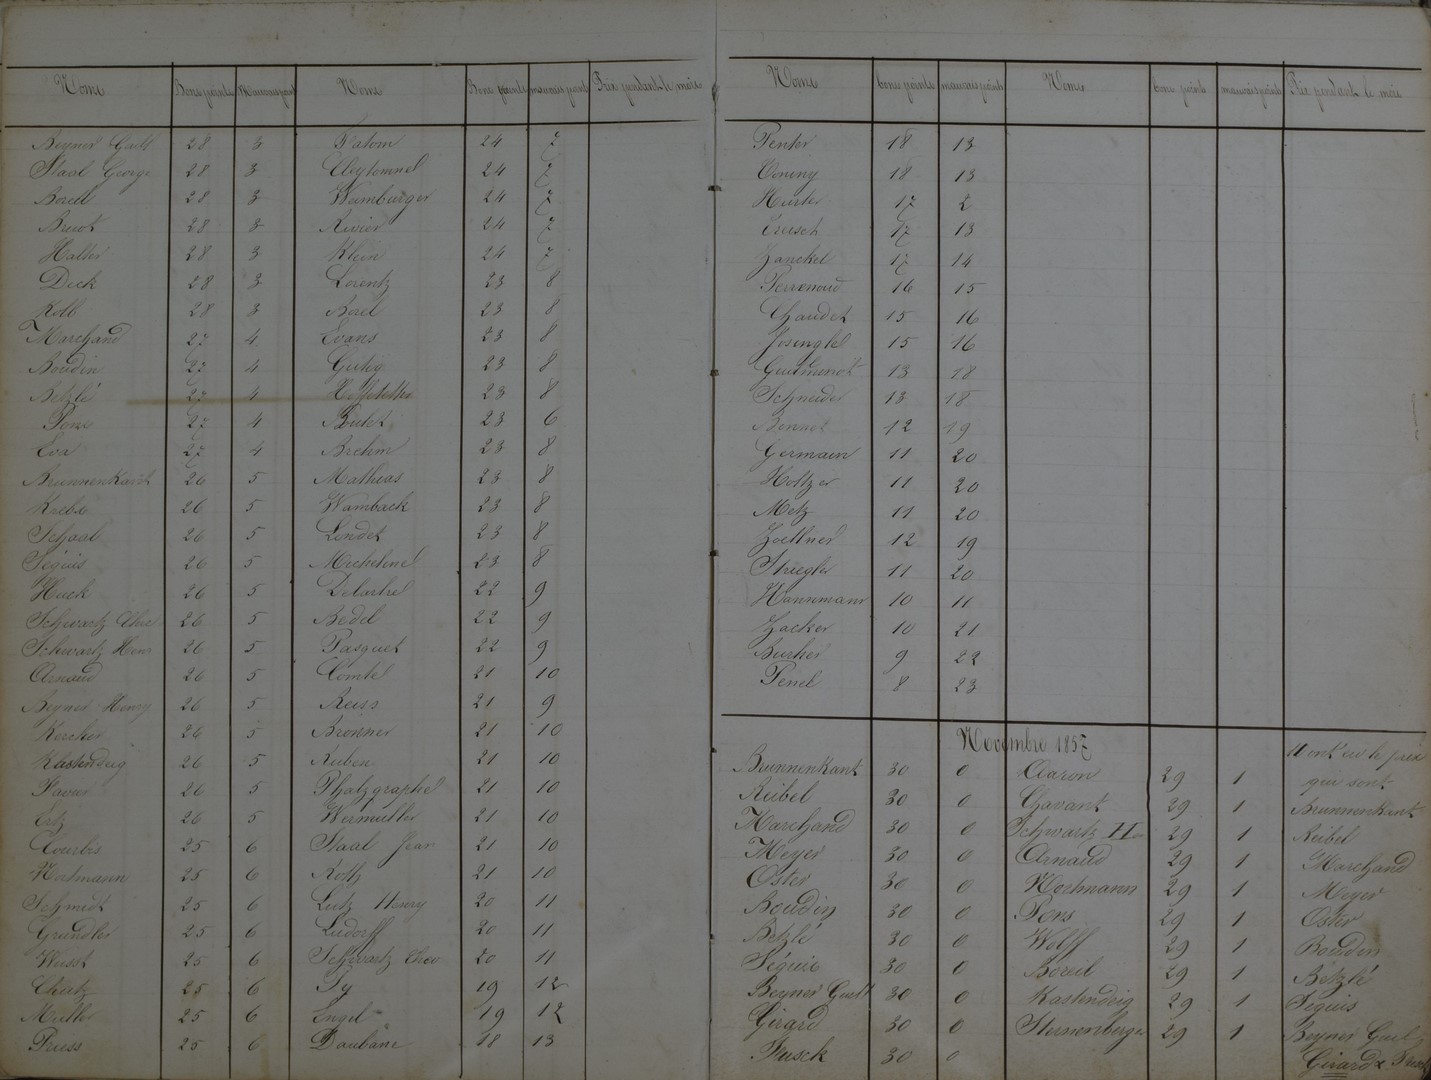 Noms Bons points Mauvais points Noms Bons points mauvais points Prix pendant le mois
Beyner Guil 28 3 Fatom 24 7
Staal George 28 3 24 7
Boreil 28 3 Wamburger 24 7
Bruot 28 3 Rivier 24 7
Halter 28 3 Klein 24 7
Deck 28 3 Lorentz 23 8
Kolb 28 3 Borel 23 8
Marchand 27 4 Evans 23 8
Boudin 27 4 Gutig 23 8
Betzlé 27 4 23 8
Pons 27 4 23 6
Eva 27 4 Brehm 23 8
Brunnenkant 26 5 Mathias 23 8
Krebs 26 5 Wamback 23 8
Schaal 26 5 Londet 23 8
Séguis 26 5 23 8
Huck 26 5 22 9
Schwartz 26 5 Bedel 22 9
Schwartz Henri 26 5 Pasquet 22 9
Arnaud 26 5 Comtel 21 10
Beyner Henry 26 5 Reiss 21 9
Kercher 26 5 Bronner 21 10
Kastendeig 26 5 Ruben 21 10
Flavier 26 5 Phalzgraphe 21 10
Ertz 26 5 Wermutler 21 10
Courbis 25 6 Staal Jean 21 10
Hortmann 25 6 Roth 21 10
Schmidt 25 6 Lutz Henry 20 11
Grundler 25 6 Ludorff 20 11
Weisst 25 6 Schwartz Theo 20 11
Chatz 25 6 19 12
Muller 25 6 Engel 19 12
Preiss 25 6 Daubanc 18 13
Noms bons points mauvais points Noms bons points mauvais points Prix pendant le mois
Penter 18 13
18 13
Hurter 17 2
17 13
Janckel 17 14
Perrenoud 16 15
Chaudet 15 16
Josingkel 15 16
Guilminot 13 18
Schneider 13 18
Bonnet 12 19
Germain 11 20
Holtzer 11 20
Metz 11 20
Zoellner 12 19
Striegler 11 20
Hannemann 10 11
Zacker 10 21
Burker 9 22
Penel 8 23
Novembre 1857
Brunnenkant 30 0 Aaron 29 1 Il ont eu le prix
Reibel 30 0 Chavant 29 1 qui sont
Marchand 30 0 Schwartz He 29 1 Brunnenkant
Meyer 30 0 Arnaud 29 1 Reibel
Oster 30 0 Hortmann 29 1 Marchand
Boudin 30 0 Pons 29 1 Meyer
Betzlé 30 0 Wolff 29 1 Oster
Séguis 30 0 Boreil 29 1 Boudin
Beyner Guil 30 0 Kastendeig 29 1 Betzlé
Girard 30 0 Sternenberger 29 1 Séguis
Frisck 30 0 Beyner Guil
Girard & Frisck